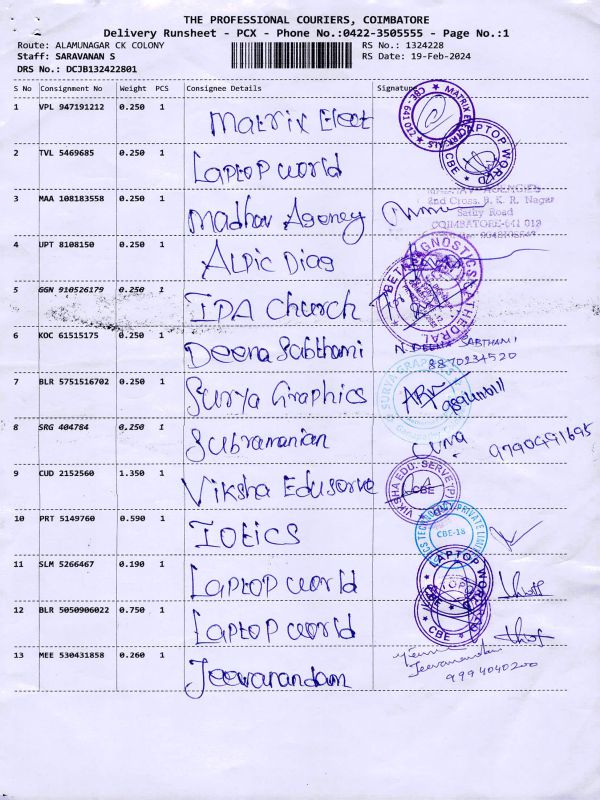 THE PROFESSIONAL COURIERS, COIMBATORE
Delivery Runsheet - PCX - Phone No.:0422-3505555 - Page No.:1
Route: ALAMUNAGAR CK COLONY RS No.: 1324228
Staff: SARAVANAN S RS Date: 19-Feb-2024
DRS No.: DCJB132422801
S No Consignment No Weight PCS Consignee Details Signature
1 VPL 947191212 0.250 1 Matrix Elect
MATRIX ELECTRICALS CBE - 641 012
2 TVL 5469685 0.250 1 Laptop World
LAPTOP WORLD CBE
3 MAA 108183558 0.250 1 Madhav Agency
2nd Cross, B. K. R. Nagar
Sathy Road
COIMBATORE-641 012
4 UPT 8108150 0.250 1 ALPIC Diag
5 GGN 910526179 0.250 1 IPA Church
6 KOC 61515175 0.250 1 Deena Sabthami
N. DEENA SABTHAMI
8870234520
7 BLR 5751516702 0.250 1 Surya Graphics
SURYA GRAPHICS
8 SRG 404784 0.250 1 Subramanian
9790491695
9 CUD 2152560 1.350 1 Viksha Eduserve
VIKSHA EDU. SERVE (P) CBE
10 PRT 5149760 0.590 1 IOtics
PRIVATE LIMITED CBE-18
11 SLM 5266467 0.190 1 Laptop World
LAPTOP WORLD CBE
12 BLR 5050906022 0.750 1 Laptop World
CBE
13 MEE 530431858 0.260 1 Jeevanandam
Jeevanandam
9994040200